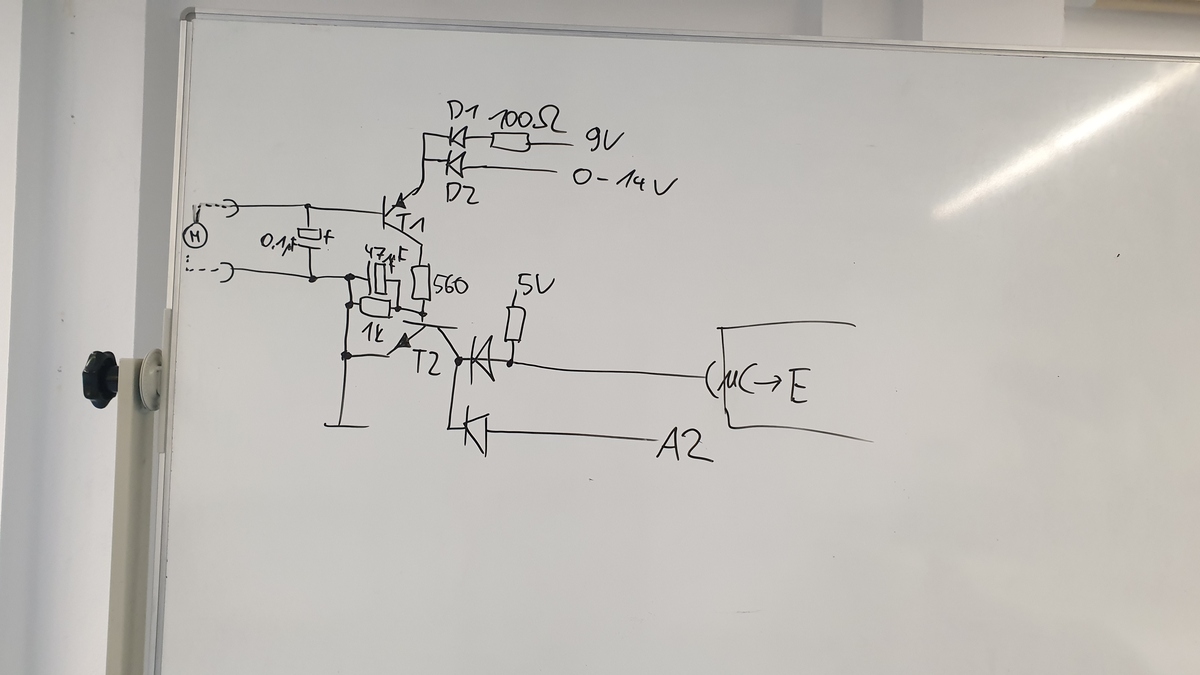 D1 100Ω 9V
D2 0-14V
M
T1
0.1µF +
47µF
560
1k
T2
5V
µC→E
A2